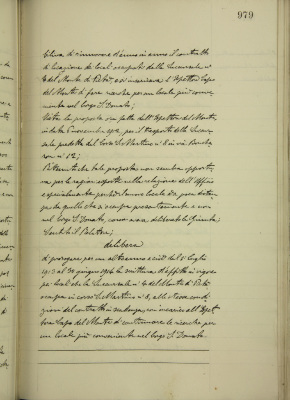 979
di rinnovare d'anno in anno il contratto
di locazione dei locali occupati dalla Succursale N
4 del Monte di Pietà, e si incaricava l'Ispettore Capo
del Monte di fare ricerche per un locale più conve-
niente nel borgo S. Donato;
Vista la proposta ora fatta dall'Ispettore del Monte,
in data 6 novembre 1912, per il trasporto della Succur-
sale predetta dal Corso S. Martino n. 8 in via
n. 12;
Ritenuto che tale proposta non sembra opportu-
na per le ragioni esposte nella relazione dell'Ufficio
e specialmente perché il nuovo locale
quello che si occupa presentemente e non
nel borgo S. Donato, come aveva deliberato la Giunta;
Sentito il Relatore;
delibera
di prorogare per un altro anno e cioè dal 1° luglio
1913 al 30 giugno 1914 la scrittura d'affitto in vigore
pei locali che la Succursale n. 4 del Monte di Pietà
occupa in corso S. Martino n. 8, alle stesse condi-
zioni del contratto in scadenza, con incarico all'Ispet-
tore Capo del Monte di continuare le ricerche per
un locale più conveniente nel borgo S. Donato.